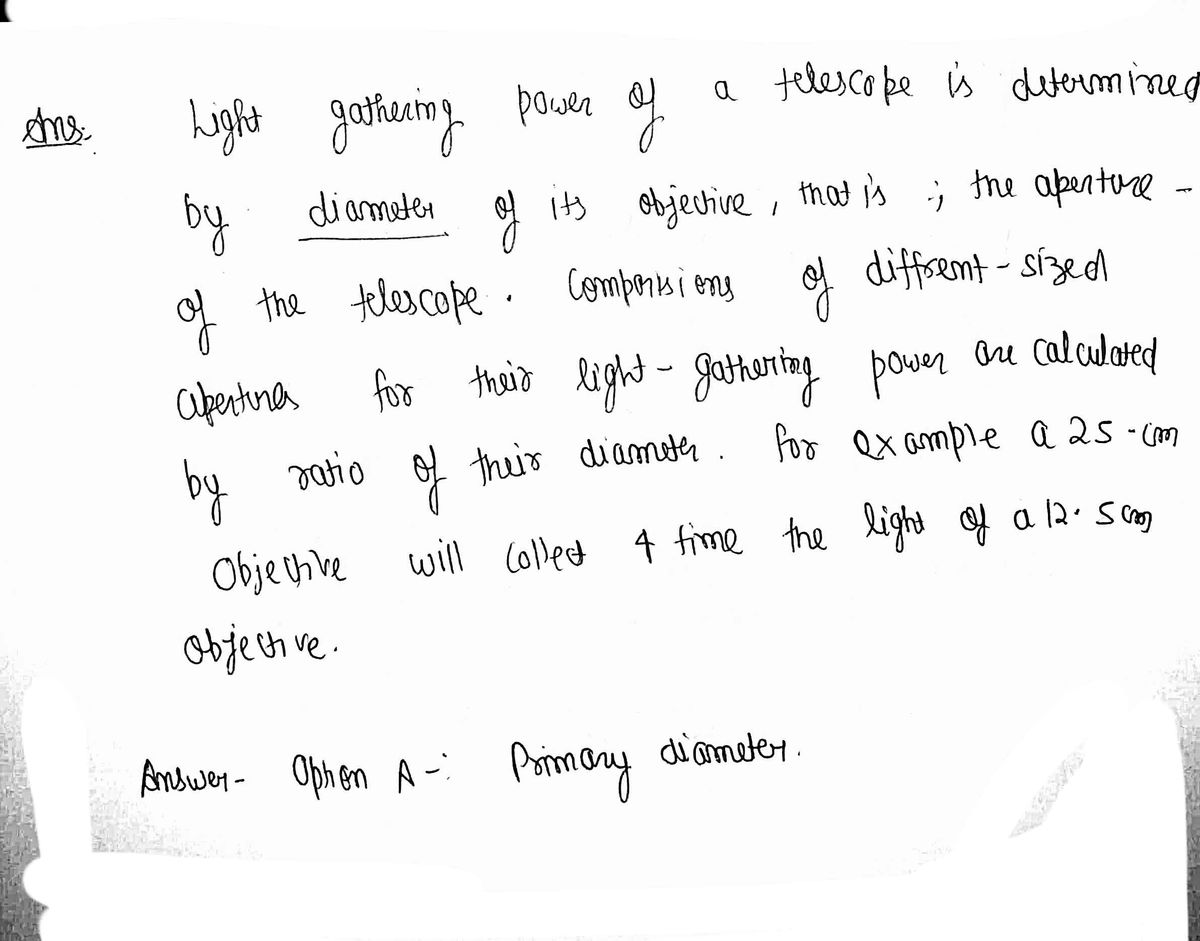 Ans:- Light gathering power of a telescope is determined
by diameter of its objective, that is ; the aperture -
of the telescope. Comparisions of diffrent-sized
apertures for their light-gathering power are calculated
by ratio of their diameter. for example a 25-cm
Objective will collect 4 time the light of a 12.5cm
objective.
Answer- Option A-: Primary diameter.